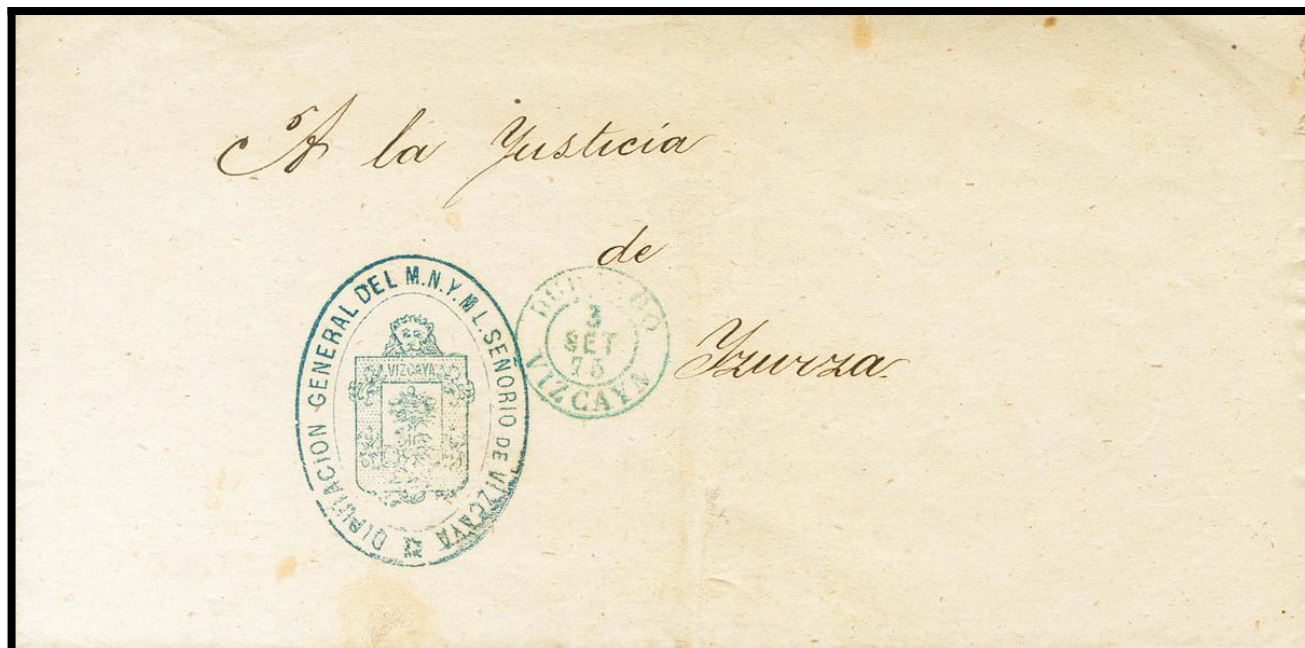 A la Justicia
de
Yzurza
DIPUTACION GENERAL DEL M.N.Y.M.L. SEÑORIO DE VIZCAYA
VIZCAYA
DURANGO
3
SET
75
VIZCAYA